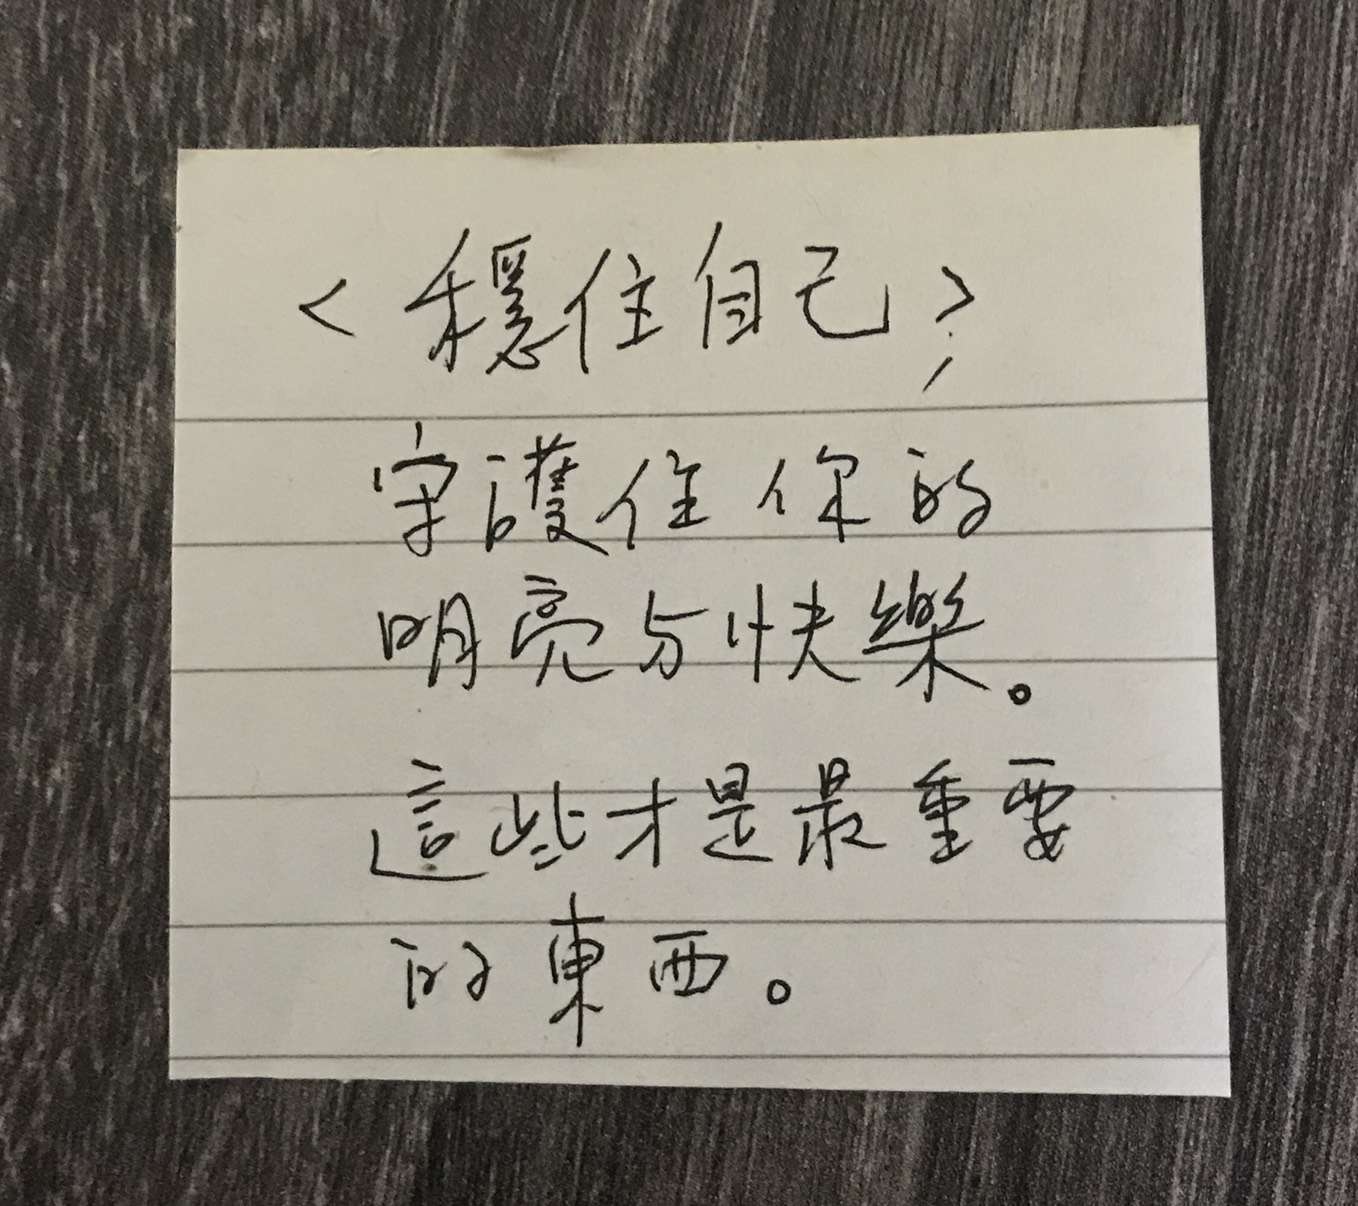 <穩住自己>
守護住你的
明亮与快樂。
這些才是最重要
的東西。